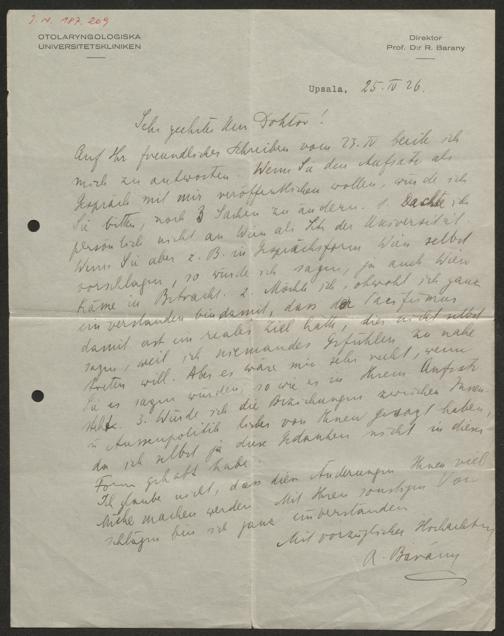 J. N. 187.209
OTOLARYNGOLOGISKA
UNIVERSITETSKLINIKEN
Direktor
Prof. D:r R. Barany
Upsala, 25. IV 26.
Sehr geehrter Herr Doktor!
Auf Ihr freundliches Schreiben vom 23. IV beeile ich
mich zu antworten. Wenn Sie den Aufsatz als
Gespräch mit mir veröffentlichen wollen, würde ich
Sie bitten, noch 3 Sachen zu ändern. 1. Dachte ich
persönlich nicht an Wien als Sitz der Universität.
Wenn Sie aber z. B. in Gesprächsform Wien selbst
vorschlagen, so würde ich sagen, ja auch Wien
käme in Betracht. 2. Möchte ich, obwohl ich ganz
einverstanden bin damit, dass der Pacifismus
damit erst ein reales Ziel hätte, dies nicht selbst
sagen, weil ich niemandes Gefühlen zu nahe
treten will. Aber es wäre mir sehr recht, wenn
Sie es sagen würden, so wie es in Ihrem Aufsatz
steht. 3. Würde ich die Beziehungen zwischen Innen-
u Aussenpolitik lieber von Ihnen gesagt haben,
da ich selbst ja diese Gedanken nicht in dieser
Form gehabt habe.
Ich glaube nicht, dass diese Änderungen Ihnen viel
Mühe machen werden. Mit Ihren sonstigen Vor
schlägen bin ich ganz einverstanden.
Mit vorzüglicher Hochachtung
R. Bárány